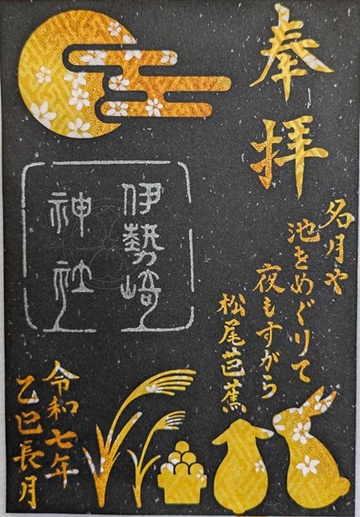 奉拝
名月や
池をめぐりて
夜もすがら
松尾芭蕉
伊勢崎
神社
令和七年
乙巳長月